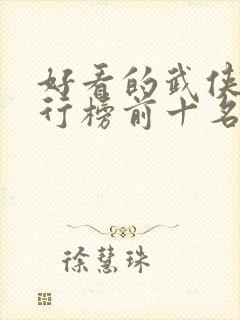 好看的武侠
行榜前十名
徐慧珠